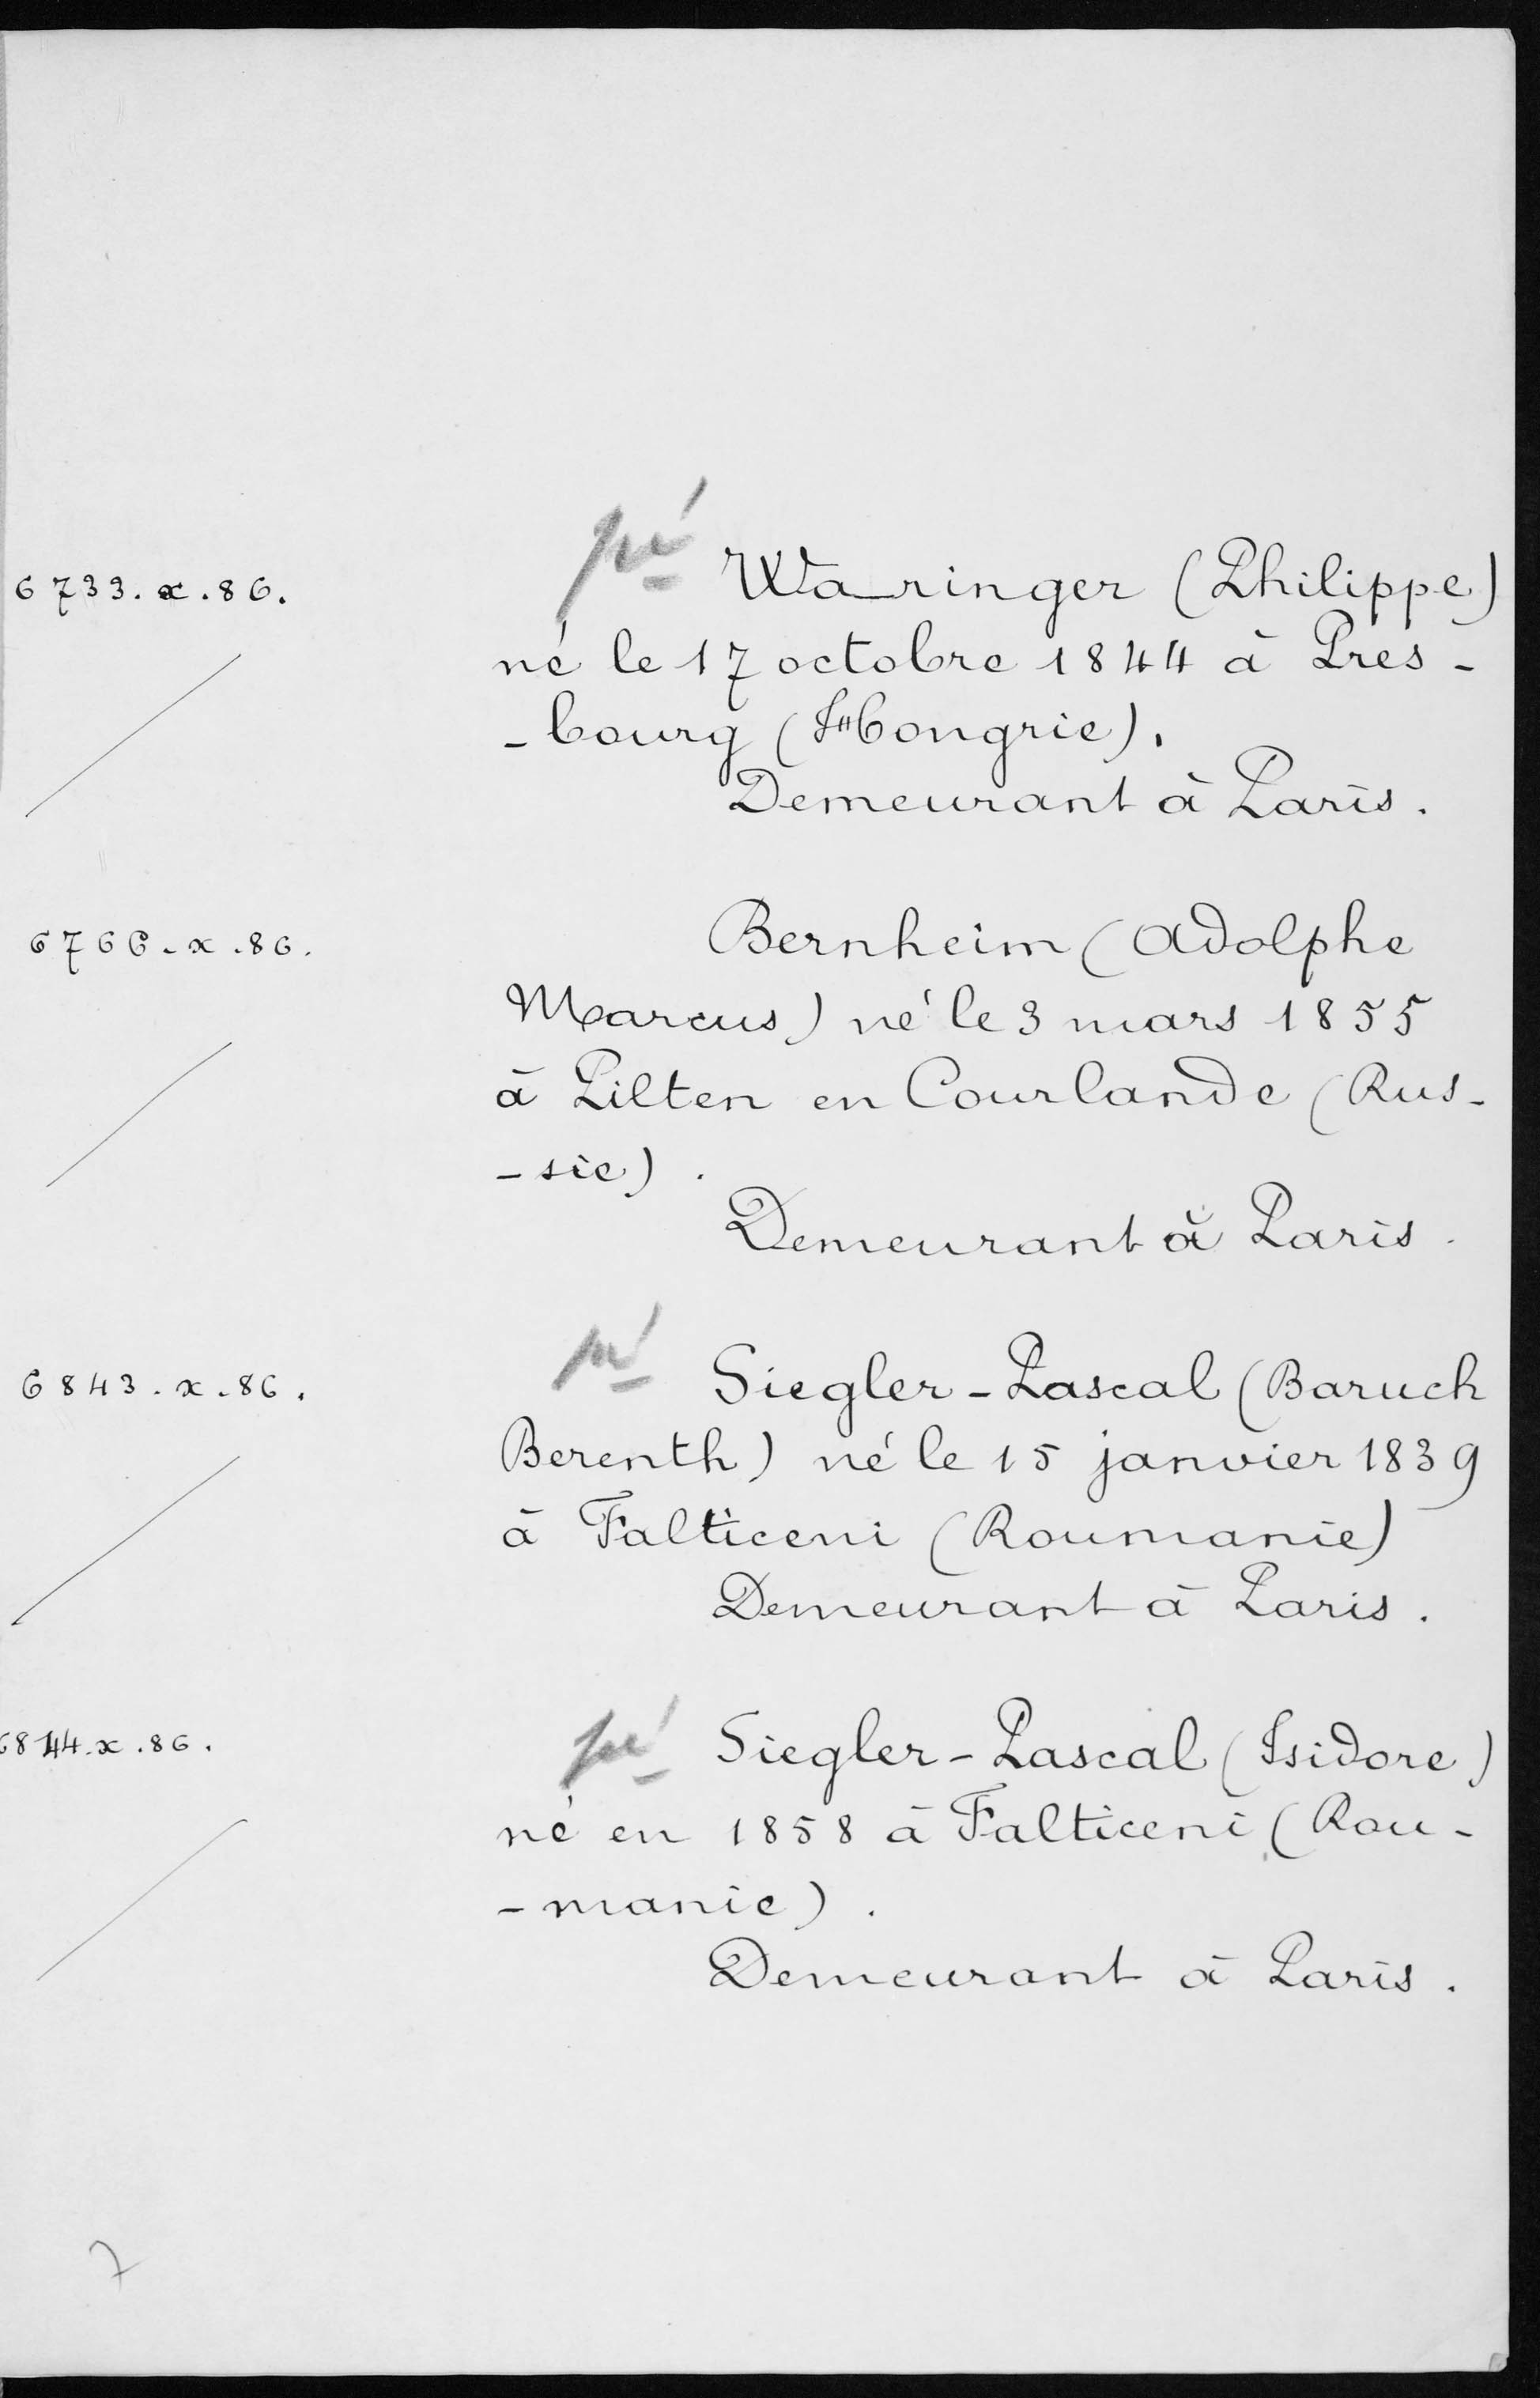 pré
6733.x.86. Waringer (Philippe)
né le 17 octobre 1844 à Pres-
-bourg (Hongrie).
Demeurant à Paris.
6766.x.86. Bernheim (Adolphe
Marcus) né le 3 mars 1855
à Pilten en Courlande (Rus-
-sie).
Demeurant à Paris.
pré
6843.x.86. Siegler-Pascal (Baruch
Berenth) né le 15 janvier 1839
à Falticeni (Roumanie)
Demeurant à Paris.
6844.x.86. pré Siegler-Pascal (Isidore)
né en 1858 à Falticeni (Rou-
-manie).
Demeurant à Paris.
7